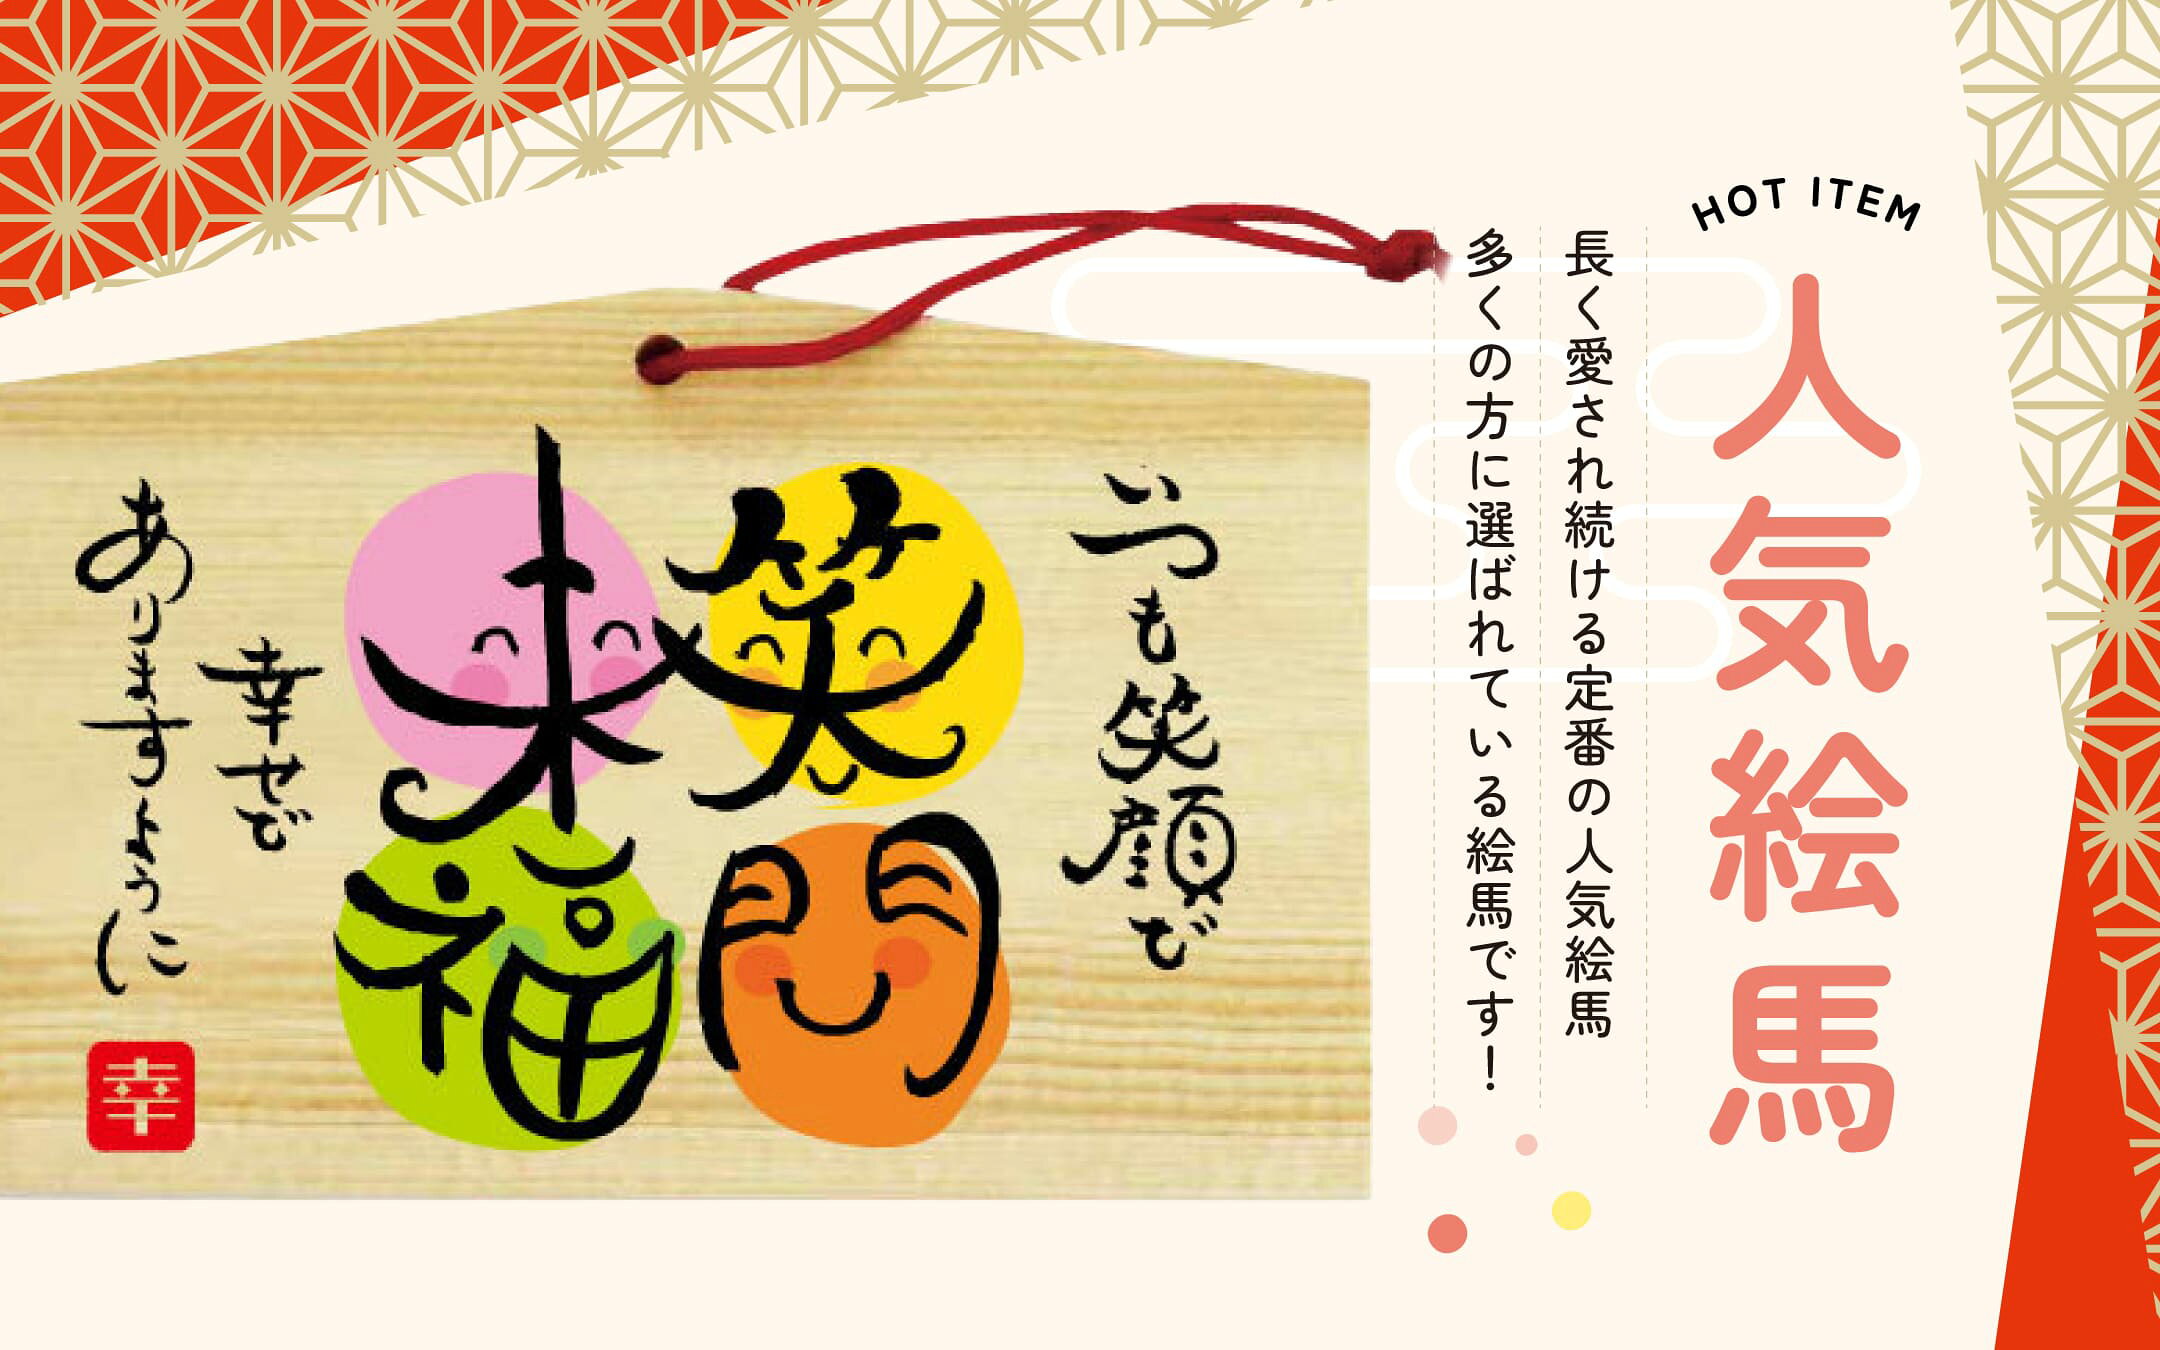 HOT ITEM
人気絵馬
長く愛され続ける定番の人気絵馬
多くの方に選ばれている絵馬です！
いつも笑顔で
笑門
来福
幸せで
ありますように
幸